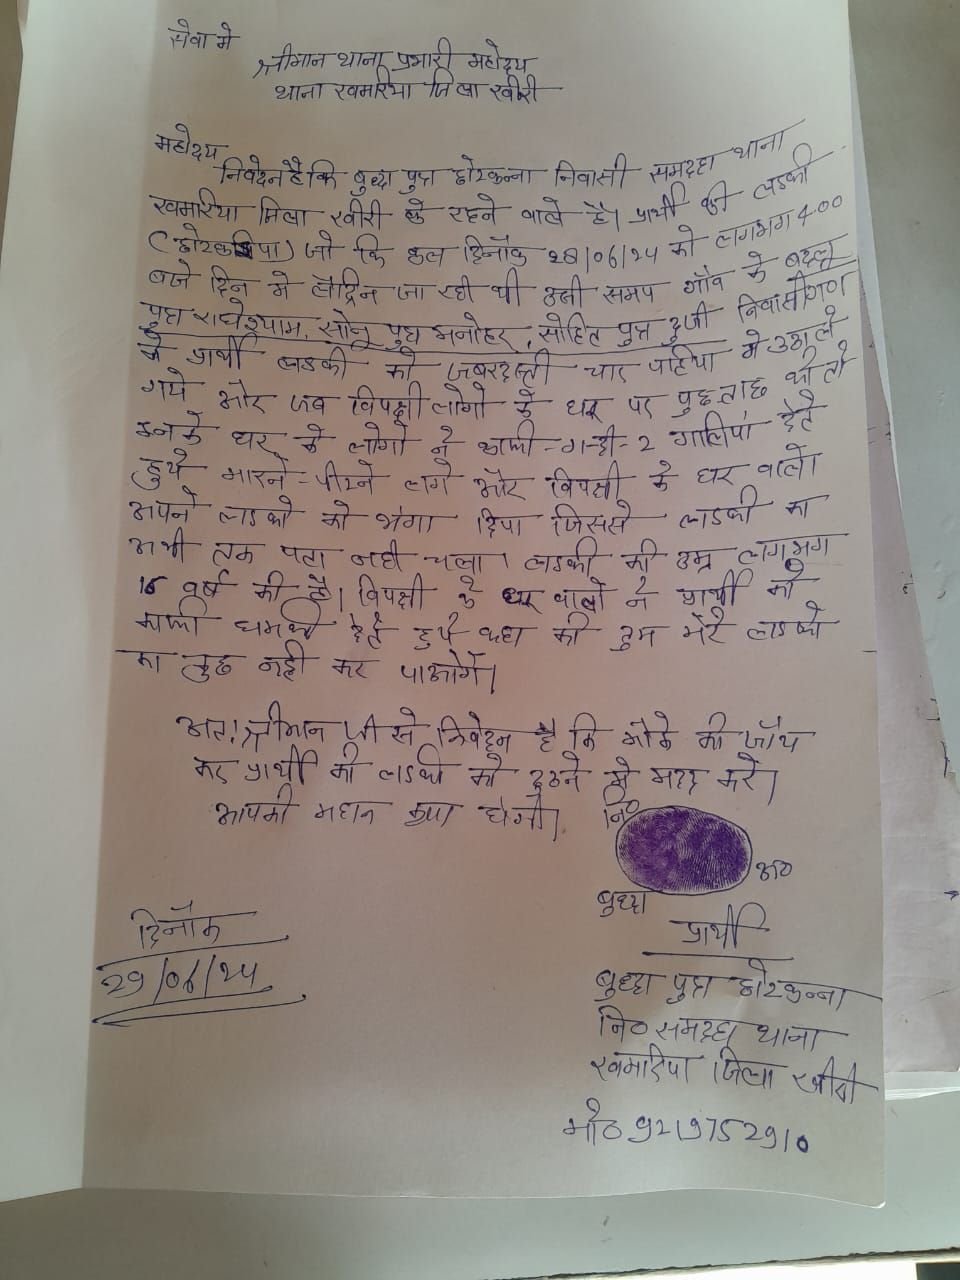 सेवा मे
श्रीमान थाना प्रभारी महोदय
थाना खमरिया जिला खीरी
महोदय
निवेदन है कि बुध्दा पुत्र छोटकन्ना निवासी समदहा थाना
खमरिया जिला खीरी के रहने वाले है। प्रार्थी की लडकी
जो कि कल दिनाँक 28/06/24 को लगभग 4:00
बजे दिन मे लैट्रिन जा रही थी उसी समय गाँव के बदलू
पुत्र राधेश्याम, सोनू पुत्र मनोहर, सोहित पुत्र निवासीगण
के प्रार्थी लडकी को जबरदस्ती चार पहिया मे उठा ले
गये और जब विपक्षी लोगो के घर पर पुछताछ की तो
उनके घर के लोगो ने काफी-गन्दी-2 गालियां देते
हुये मारने-पीटने लगे और विपक्षी के घर वालो
अपने लडको को भगा दिया जिससे लडकी का
अभी तक पता नही चला। लडकी की उम्र लगभग
वर्ष की है। विपक्षी के घर वालो ने प्रार्थी को
काफी धमकी देते हुये कहा की तुम मेरे लडको
का कुछ नही कर पाओगें।
अतः श्रीमान जी से निवेदन है कि मौके की जाँच
कर प्रार्थी की लडकी को ढुढने मे मदद करे।
आपकी महान कृपा होगी।
नि०
अ०
बुध्दा
प्रार्थी
दिनाँक
29/06/24
बुध्दा पुत्र छोटकन्ना
नि० समदहा थाना
खमरिया जिला खीरी
मो० 9219752910